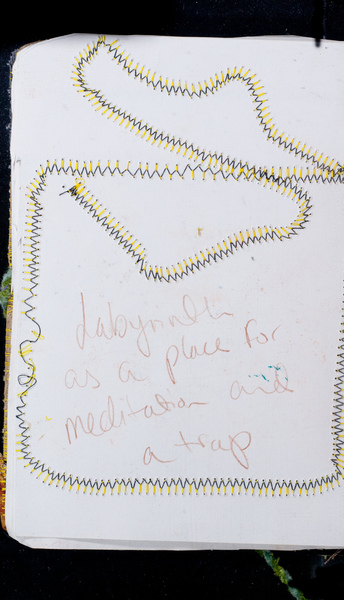 Labyrinth
as a place for
meditation and
a trap